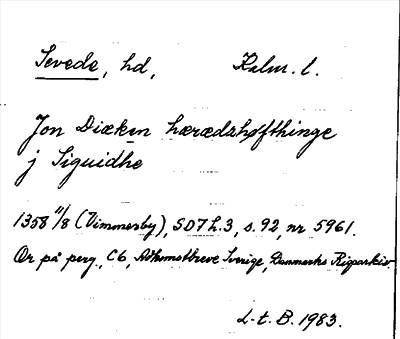 Sevede, hd, Kalm. l.
Jon Diæken hærædzhøfthinge
j Siguidhe
1358 11/8 (Vimmerby), SD7 L.3, s.92, nr 5961.
Or på perg., C6, Adkomstbreve Sverige, Danmarks Rigsarkiv.
L-t. B. 1983.